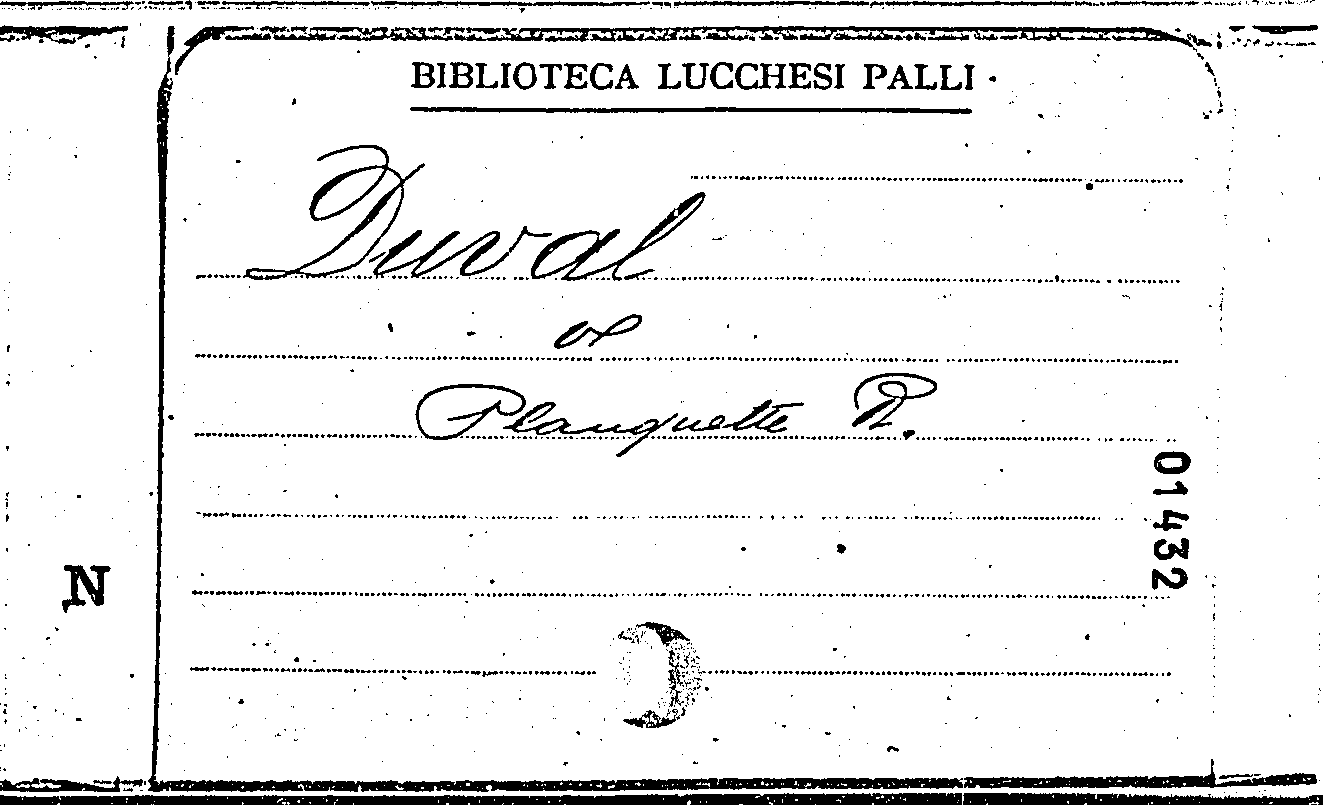 BIBLIOTECA LUCCHESI PALLI
Duval
Planquette R.
01432
N